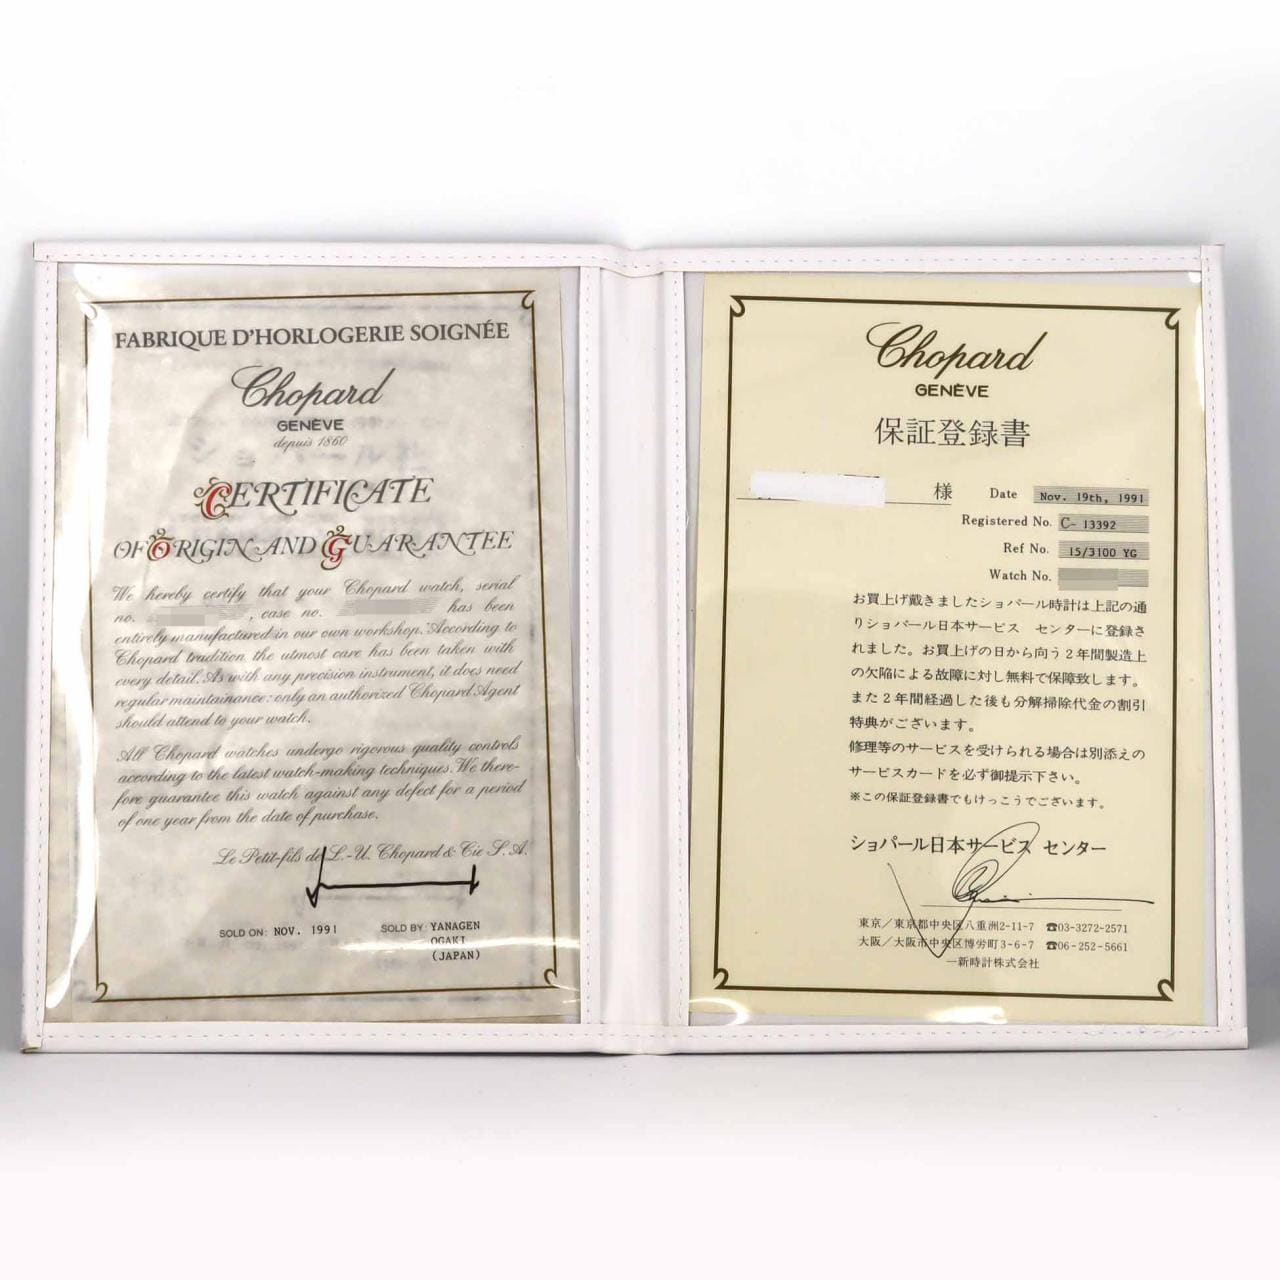 FABRIQUE D'HORLOGERIE SOIGNÉE
Chopard
GENÈVE
depuis 1860
CERTIFICATE
OF ORIGIN AND GUARANTEE
We hereby certify that your Chopard watch, serial
no. , case no. has been
entirely manufactured in our own workshop. According to
Chopard tradition the utmost care has been taken with
every detail. As with any precision instrument, it does need
regular maintainance: only an authorized Chopard Agent
should attend to your watch.
All Chopard watches undergo rigorous quality controls
according to the latest watch-making techniques. We there-
fore guarantee this watch against any defect for a period
of one year from the date of purchase.
Le Petit-fils de L.-U. Chopard & Cie S.A.
SOLD ON: NOV. 1991
SOLD BY: YANAGEN
OGAKI
(JAPAN)
Chopard
GENÈVE
保証登録書
様
Date Nov. 19th, 1991
Registered No. C- 13392
Ref No. 15/3100 YG
Watch No.
お買上げ戴きましたショパール時計は上記の通
りショパール日本サービス センターに登録さ
れました。お買上げの日から向う2年間製造上
の欠陥による故障に対し無料で保障致します。
また2年間経過した後も分解掃除代金の割引
特典がございます。
修理等のサービスを受けられる場合は別添えの
サービスカードを必ず御提示下さい。
※この保証登録書でもけっこうでございます。
ショパール日本サービス センター
東京/東京都中央区八重洲2-11-7 ☎03-3272-2571
大阪/大阪市中央区博労町3-6-7 ☎06-252-5661
一新時計株式会社